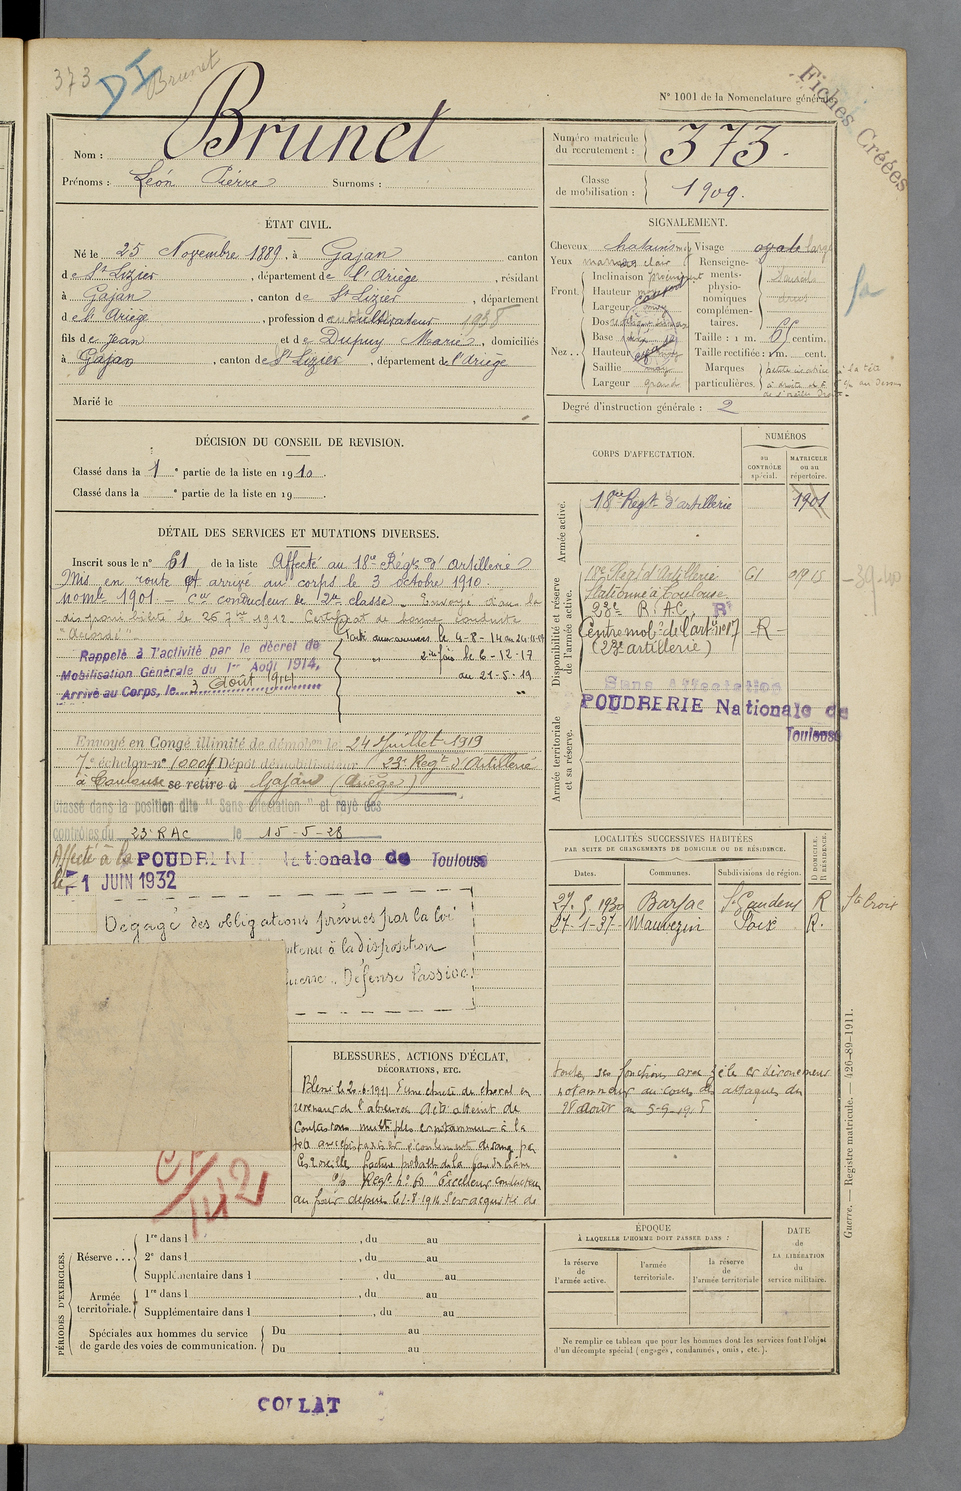 373
DI
Brunet
N° 1001 de la Nomenclature générale
Fiches Créées
Nom : Brunet
Prénoms : Léon Pierre Surnoms :
Numéro matricule du recrutement : 373.
Classe de mobilisation : 1909.
ÉTAT CIVIL.
Né le 25 Novembre 1889, à Gajan canton
de St Lizier, département de l'Ariège, résidant
à Gajan, canton de St Lizier, département
de l'Ariège, profession de cultivateur 1938
fils de Jean et de Dupuy Marie, domiciliés
à Gajan, canton de St Lizier, département de l'Ariège
Marié le
SIGNALEMENT.
Cheveux chatains Visage ovale large
Yeux marron clair
Front. Inclinaison
Hauteur
Largeur
Nez... Dos
Base
Hauteur
Saillie moy
Largeur grand
Renseignements physionomiques complémentaires.
Taille : 1 m. 65 centim.
Taille rectifiée : 1 m. cent.
Marques particulières. petite cicatrice à la tête
à droite et
de l'oreille droite
Degré d'instruction générale : 2
DÉCISION DU CONSEIL DE REVISION.
Classé dans la 1e partie de la liste en 1910.
Classé dans la e partie de la liste en 19
DÉTAIL DES SERVICES ET MUTATIONS DIVERSES.
Inscrit sous le n° 61 de la liste Affecté au 18me Régt d'Artillerie
Mis en route et arrivé au corps le 3 octobre 1910.
Nomle 1901 - Cer conducteur de 2me classe. Envoyé dans la
disponibilité le 26 7bre 1912. Certificat de bonne conduite
"Accordé"
Parti aux armées le 4-8-14 au
2ème fois le 6-12-17
au 21-5-19
Rappelé à l'activité par le décret de
Mobilisation Générale du 1er Août 1914,
Arrivé au Corps, le 3 Août 1914
Envoyé en Congé illimité de démob. le 24 Juillet 1919
7e échelon n° 10004 Dépôt démobilisateur 23e Régt d'Artillerie
à Toulouse se retire à Gajan (Ariège)
Classé dans la position dite "Sans affectation" et rayé des
contrôles du 23e RAC le 15-5-28
Affecté à la POUDRERIE Nationale de Toulouse
le 1 JUIN 1932
Dégagé des obligations prévues par la loi
ntenu à la disposition
uerre. Défense Passive.
CORPS D'AFFECTATION.
NUMÉROS
AU CONTRÔLE spécial.
MATRICULE ou au répertoire.
Armée active.
18me Régt d'artillerie 1901
Disponibilité et réserve de l'armée active.
Régt d'Artillerie
Stationné à Toulouse
23e R.A.C.
Centre mobre de l'arte n° 17 - R -
(23e artillerie)
Armée territoriale et sa réserve.
Sans Affectation
POUDRERIE Nationale de
Toulouse
LOCALITÉS SUCCESSIVES HABITÉES
PAR SUITE DE CHANGEMENTS DE DOMICILE OU DE RÉSIDENCE.
Dates. Communes. Subdivisions de région. D DOMICILE. R RÉSIDENCE.
27.5.1930 Barjac St Gaudens R Ste Croix
27-1-37 Mauvezin Foix R.
toutes ses fonction avec zèle et dévouement
notamment au cours des attaques du
28 août au 5-9-1918
BLESSURES, ACTIONS D'ÉCLAT,
DÉCORATIONS, ETC.
Blessé le 20-6-1911 d'une chute de cheval en
revenant de l'abreuvoir. Acte atteint de
Contusions multiples et notamment à la
"Excellent conducteur
au front depuis le 1-8-1914 s'est acquitté de
1142
PÉRIODES D'EXERCICES.
Réserve... 1re dans l , du au
2e dans l , du au
Supplémentaire dans l , du au
Armée territoriale. 1re dans l , du au
Supplémentaire dans l , du au
Spéciales aux hommes du service de garde des voies de communication. Du au
Du au
ÉPOQUE
À LAQUELLE L'HOMME DOIT PASSER DANS :
la réserve de l'armée active.
l'armée territoriale.
la réserve de l'armée territoriale
DATE de LA LIBÉRATION du service militaire.
Ne remplir ce tableau que pour les hommes dont les services font l'objet
d'un décompte spécial (engagés, condamnés, omis, etc.).
Guerre. — Registre matricule. — 426-89-1911.
COLLAT